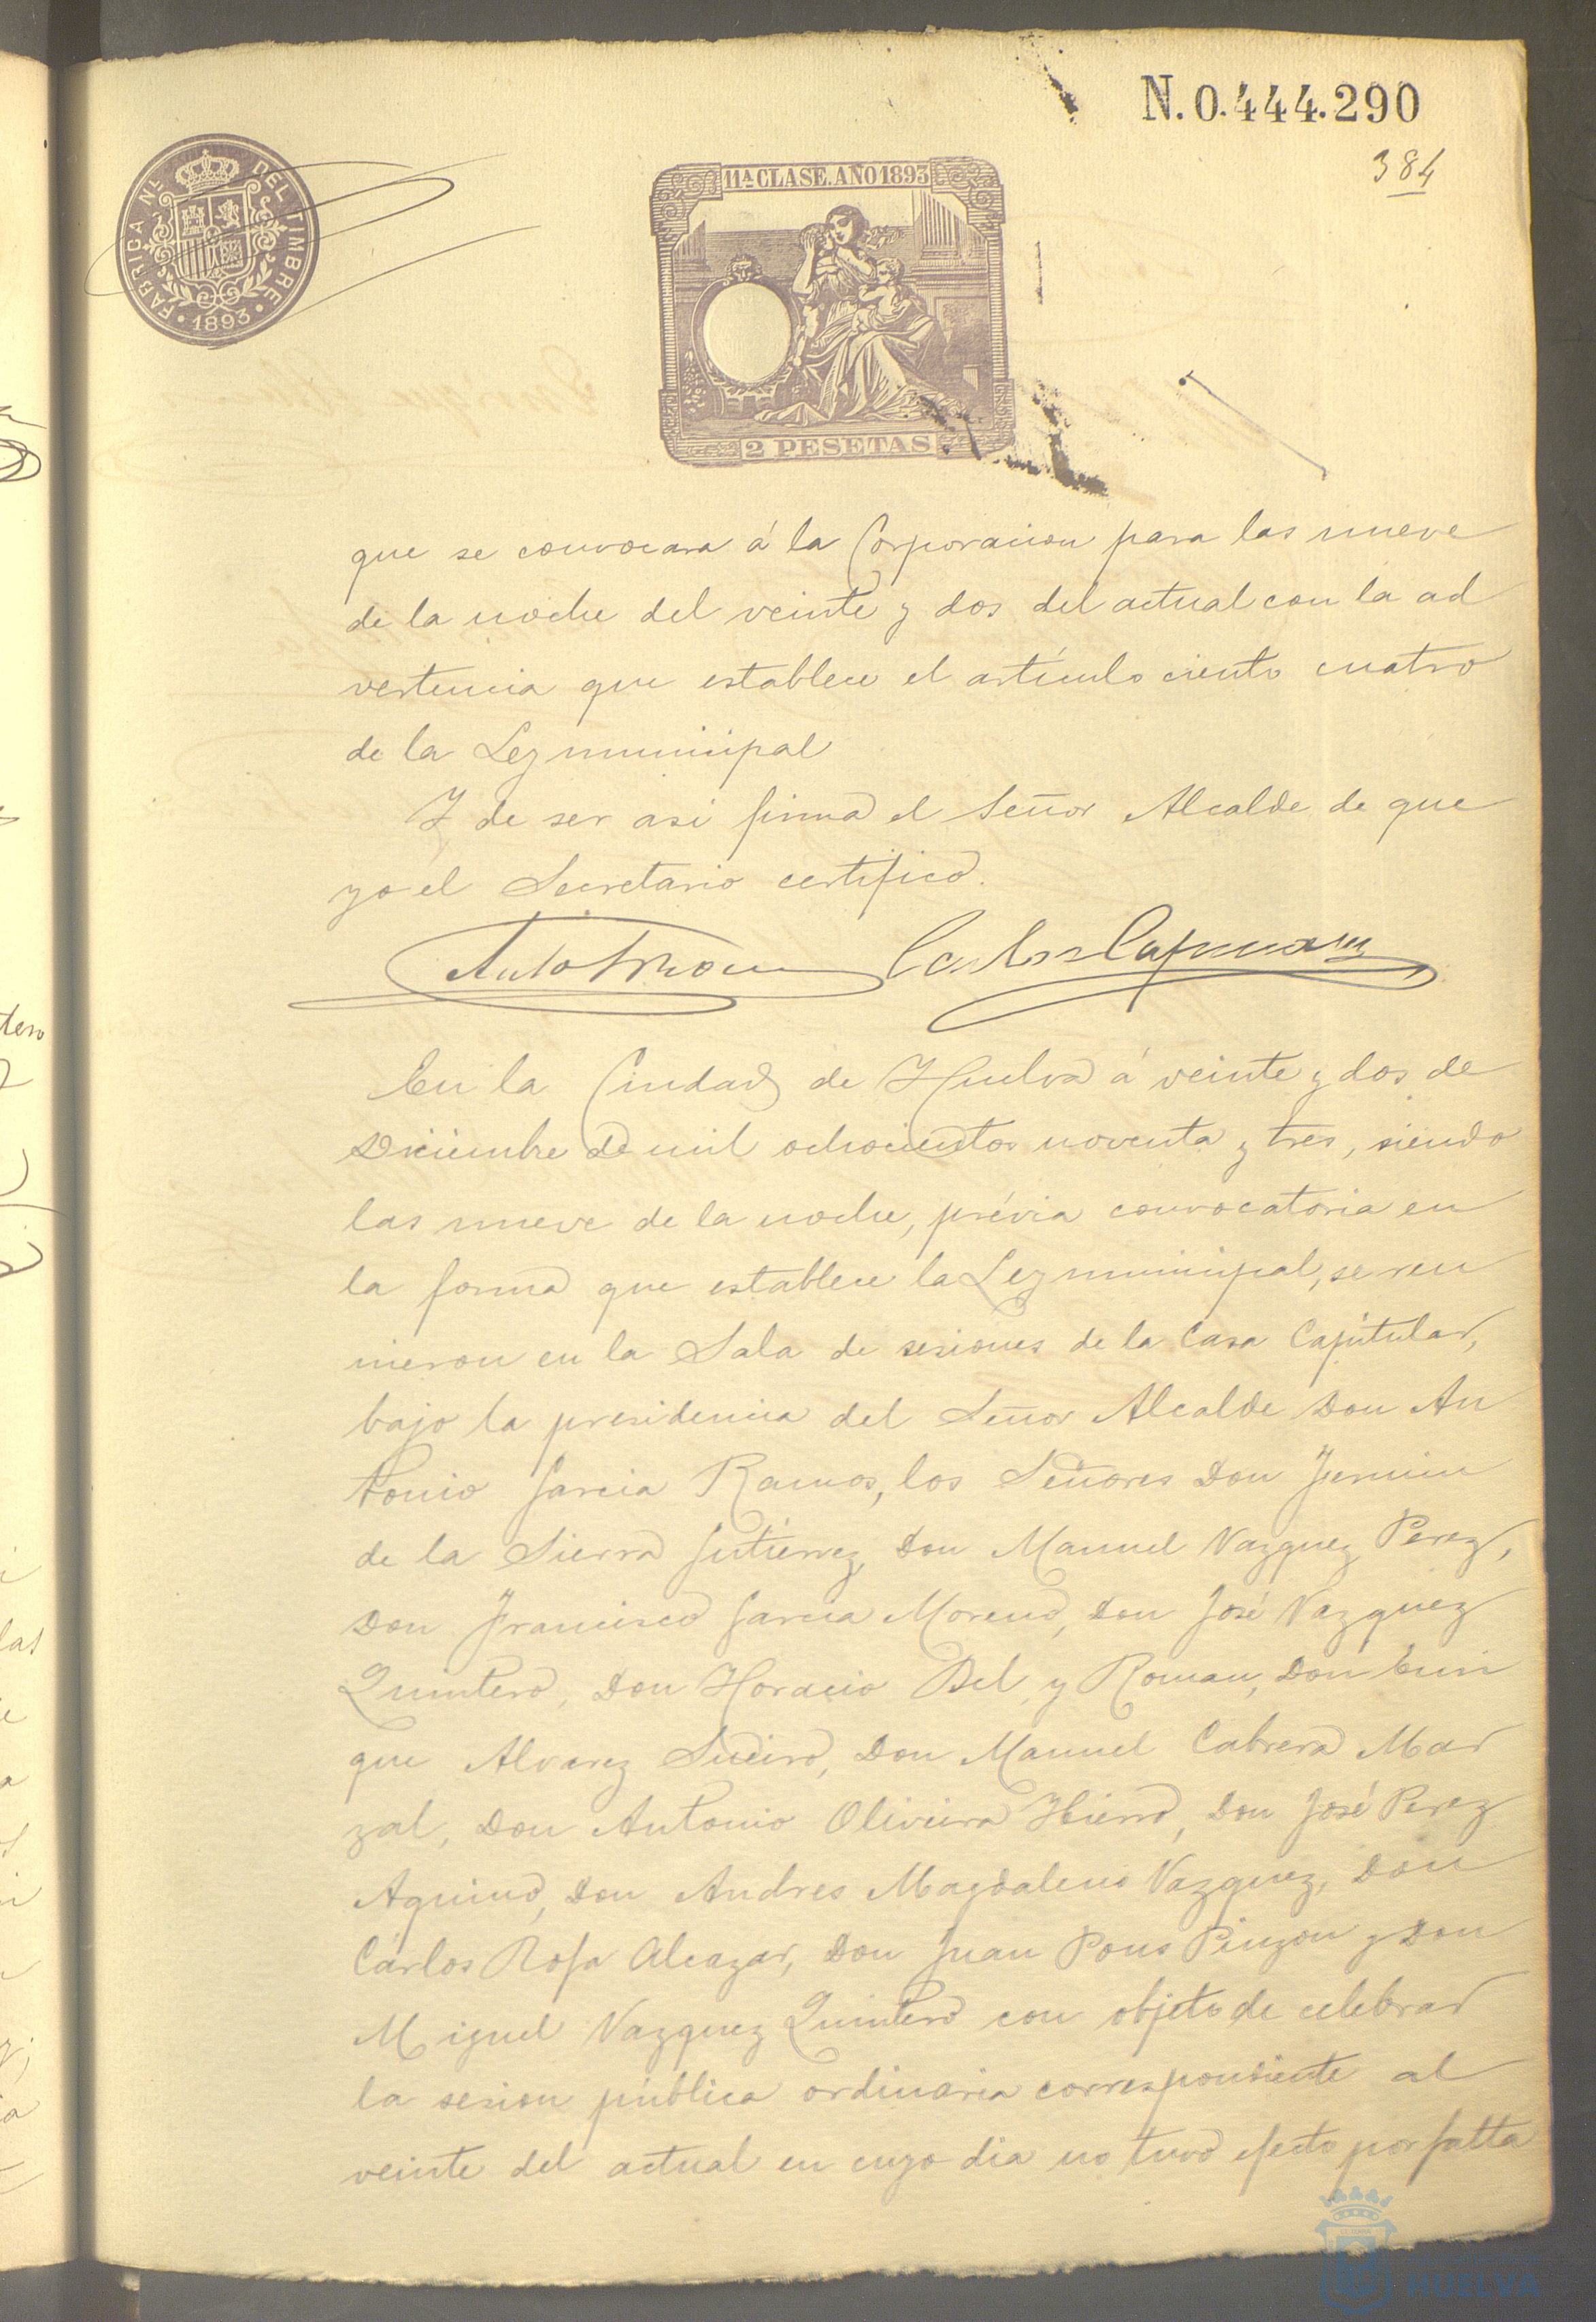 N.0.444.290
384
FABRICA NL. DEL TIMBRE
1893
11ª CLASE. AÑO 1893
2 PESETAS
que se convocara á la Corporacion para las nueve
de la noche del veinte y dos del actual con la ad
vertencia que establece el artículo ciento cuatro
de la Ley municipal
Y de ser asi firma el Señor Alcalde de que
yo el Secretario certifico.
En la Ciudad de Huelva á veinte y dos de
Diciembre de mil ochocientos noventa y tres, siendo
las nueve de la noche, prévia convocatoria en
la forma que establece la Ley municipal, se reu
nieron en la Sala de sesiones de la Casa Capitular,
bajo la presidencia del Señor Alcalde Don An
tonio Garcia Ramos, los Señores Don Fermin
de la Sierra Gutierrez, Don Manuel Vazquez Perez,
Don Francisco Garcia Moreno, Don José Vazquez
Quintero, Don Horacio Bel y Roman, Don Enri
que Alvarez Sueiro, Don Manuel Cabrera Mar
zal, Don Antonio Oliveira Hierro, Don José Perez
Aquino, Don Andres Magdaleno Vazquez, Don
Cárlos Rofa Alcazar, Don Juan Pons Pinzon y Don
Miguel Vazquez Quintero con objeto de celebrar
la sesion pública ordinaria correspondiente al
veinte del actual en cuyo dia no tuvo efecto por falta
HUELVA